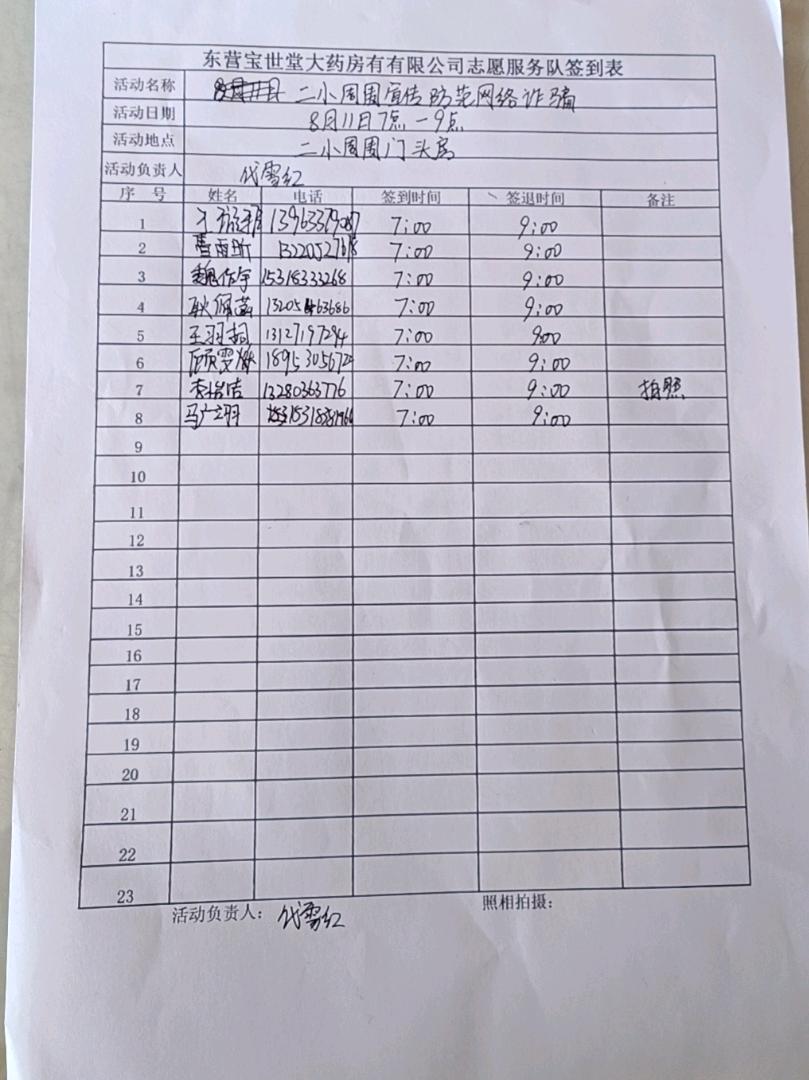 东营宝世堂大药房有有限公司志愿服务队签到表
活动名称 二小周围宣传防范网络诈骗
活动日期 8月11日7点-9点
活动地点 二小周围门头房
活动负责人 代雪红
序 号 姓名 电话 签到时间 签退时间 备注
1 7:00 9:00
2 曹雨昕 7:00 9:00
3 魏佑宇 15318333268 7:00 9:00
4 耿佩菡 7:00 9:00
5 王羽桐 13127197294 7:00 9:00
6 顾雯 7:00 9:00
7 李怡洁 13280363776 7:00 9:00 拍照
8 马 7:00 9:00
9
10
11
12
13
14
15
16
17
18
19
20
21
22
23
活动负责人: 代雪红 照相拍摄: